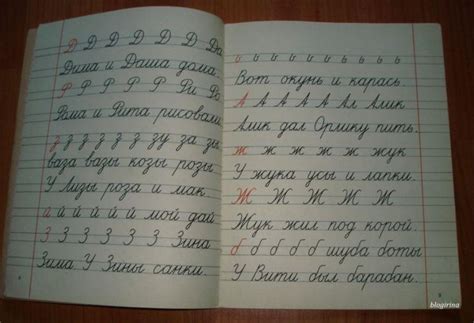 Д Д Д Д Д Д Д Да
Дима и Даша дома.
Р Р Р Р Р Ри Ро
Рома и Рита рисовали
з з з з з зу за зы
ваза вазы козы розы
У Лизы роза и мак.
й й й й й мой дай
З З З З З З Зина
Зима. У Зины санки.
ь ь ь ь ь ь ь ь ь
Вот окунь и карась.
А А А А А Ал Алик
Алик дал Орлику пить.
ж ж ж ж ж жук
У жука усы и лапки.
Ж Ж Ж Ж Ж
Жук жил под корой.
б б б б б шуба боты
У Вити был барабан.
blogirina